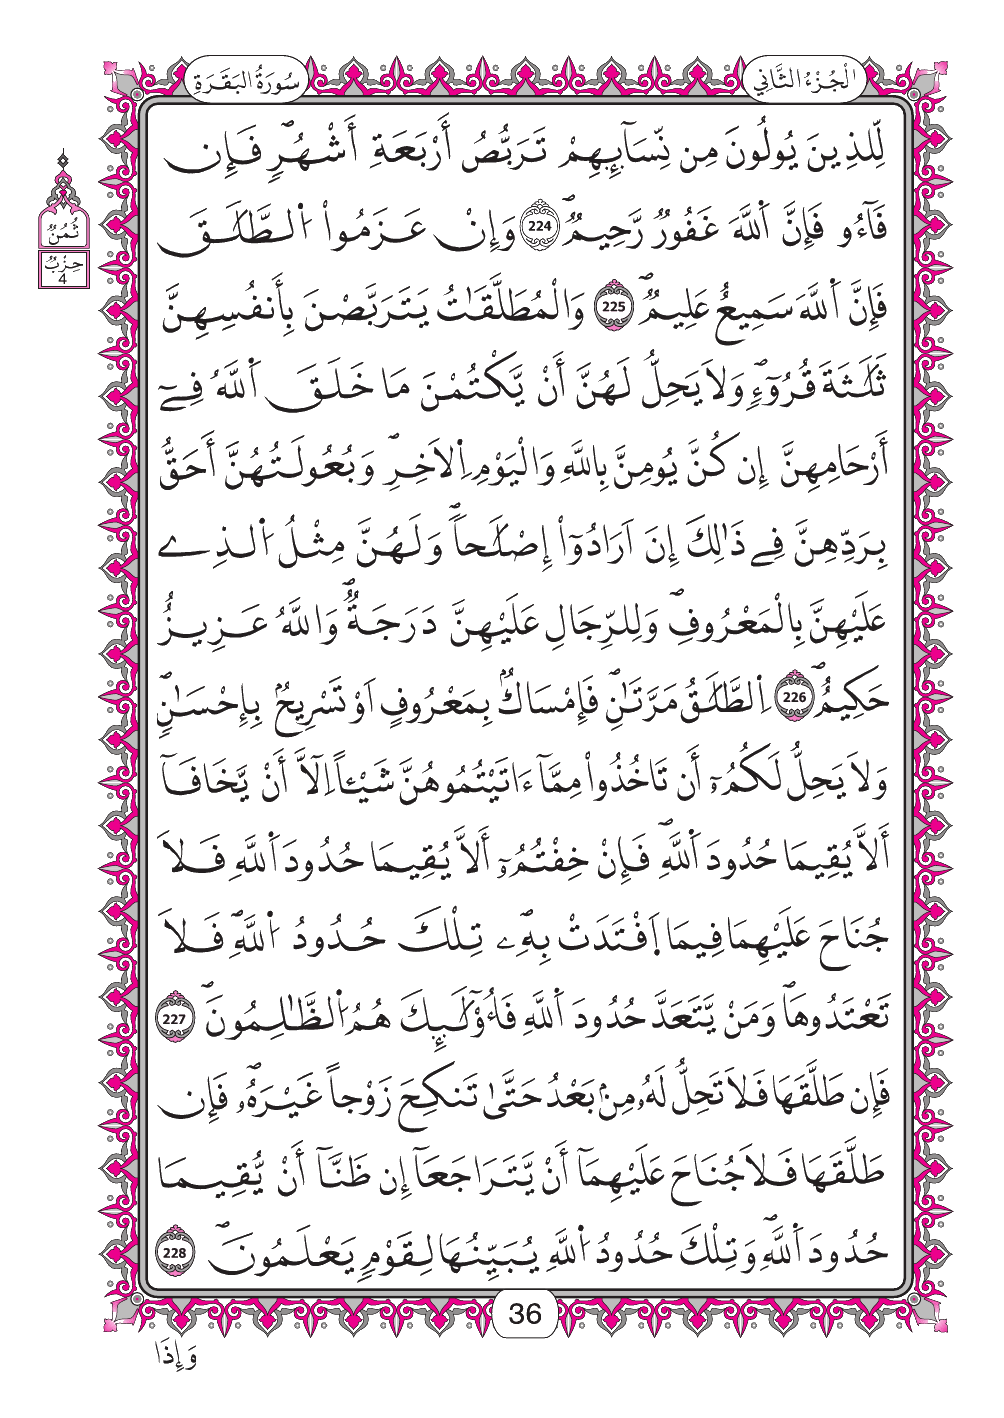 سُورَةُ البَقَرَةِ
اَلْجُزْءُ الثَّانِي
لِّلذِينَ يُولُونَ مِن نِّسَآئِهِمْ تَرَبُّصُ أَرْبَعَةِ أَشْهُرٖ فَإِن
فَآءُو فَإِنَّ اَ۬للَّهَ غَفُورٞ رَّحِيمٞ 224 وَإِنْ عَزَمُواْ اُ۬لطَّلَٰقَ
فَإِنَّ اَ۬للَّهَ سَمِيعٌ عَلِيمٞ 225 وَالْمُطَلَّقَٰتُ يَتَرَبَّصْنَ بِأَنفُسِهِنَّ
ثَلَٰثَةَ قُرُوٓءٖ وَلَا يَحِلُّ لَهُنَّ أَنْ يَّكْتُمْنَ مَا خَلَقَ اَ۬للَّهُ فِےٓ
أَرْحَامِهِنَّ إِن كُنَّ يُومِنَّ بِاللَّهِ وَالْيَوْمِ اِ۬لَاخِرِ وَبُعُولَتُهُنَّ أَحَقُّ
بِرَدِّهِنَّ فِے ذَٰلِكَ إِنَ اَرَادُوٓاْ إِصْلَٰحاٗ وَلَهُنَّ مِثْلُ اُ۬لذِے
عَلَيْهِنَّ بِالْمَعْرُوفِ وَلِلرِّجَالِ عَلَيْهِنَّ دَرَجَةٞ وَاللَّهُ عَزِيزٌ
حَكِيمٌ 226 اِ۬لطَّلَٰقُ مَرَّتَٰنِ فَإِمْسَاكُۢ بِمَعْرُوفٍ اَوْ تَسْرِيحُۢ بِإِحْسَٰنٖ
وَلَا يَحِلُّ لَكُمُۥٓ أَن تَاخُذُواْ مِمَّآ ءَاتَيْتُمُوهُنَّ شَيْـًٔا اِلَّآ أَنْ يَّخَافَآ
أَلَّا يُقِيمَا حُدُودَ اَ۬للَّهِ فَإِنْ خِفْتُمُۥٓ أَلَّا يُقِيمَا حُدُودَ اَ۬للَّهِ فَلَا
جُنَاحَ عَلَيْهِمَا فِيمَا اَ۪فْتَدَتْ بِهِۦ تِلْكَ حُدُودُ اُ۬للَّهِ فَلَا
تَعْتَدُوهَا وَمَنْ يَّتَعَدَّ حُدُودَ اَ۬للَّهِ فَأُوْلَٰٓئِكَ هُمُ اُ۬لظَّٰلِمُونَ 227
فَإِن طَلَّقَهَا فَلَا تَحِلُّ لَهُۥ مِنۢ بَعْدُ حَتَّىٰ تَنكِحَ زَوْجاً غَيْرَهُۥ فَإِن
طَلَّقَهَا فَلَا جُنَاحَ عَلَيْهِمَآ أَنْ يَّتَرَاجَعَآ إِن ظَنَّآ أَنْ يُّقِيمَا
حُدُودَ اَ۬للَّهِ وَتِلْكَ حُدُودُ اُ۬للَّهِ يُبَيِّنُهَا لِقَوْمٖ يَعْلَمُونَ 228
ثُمُنُ
حِزْبٌ
4
36
وَإِذَا